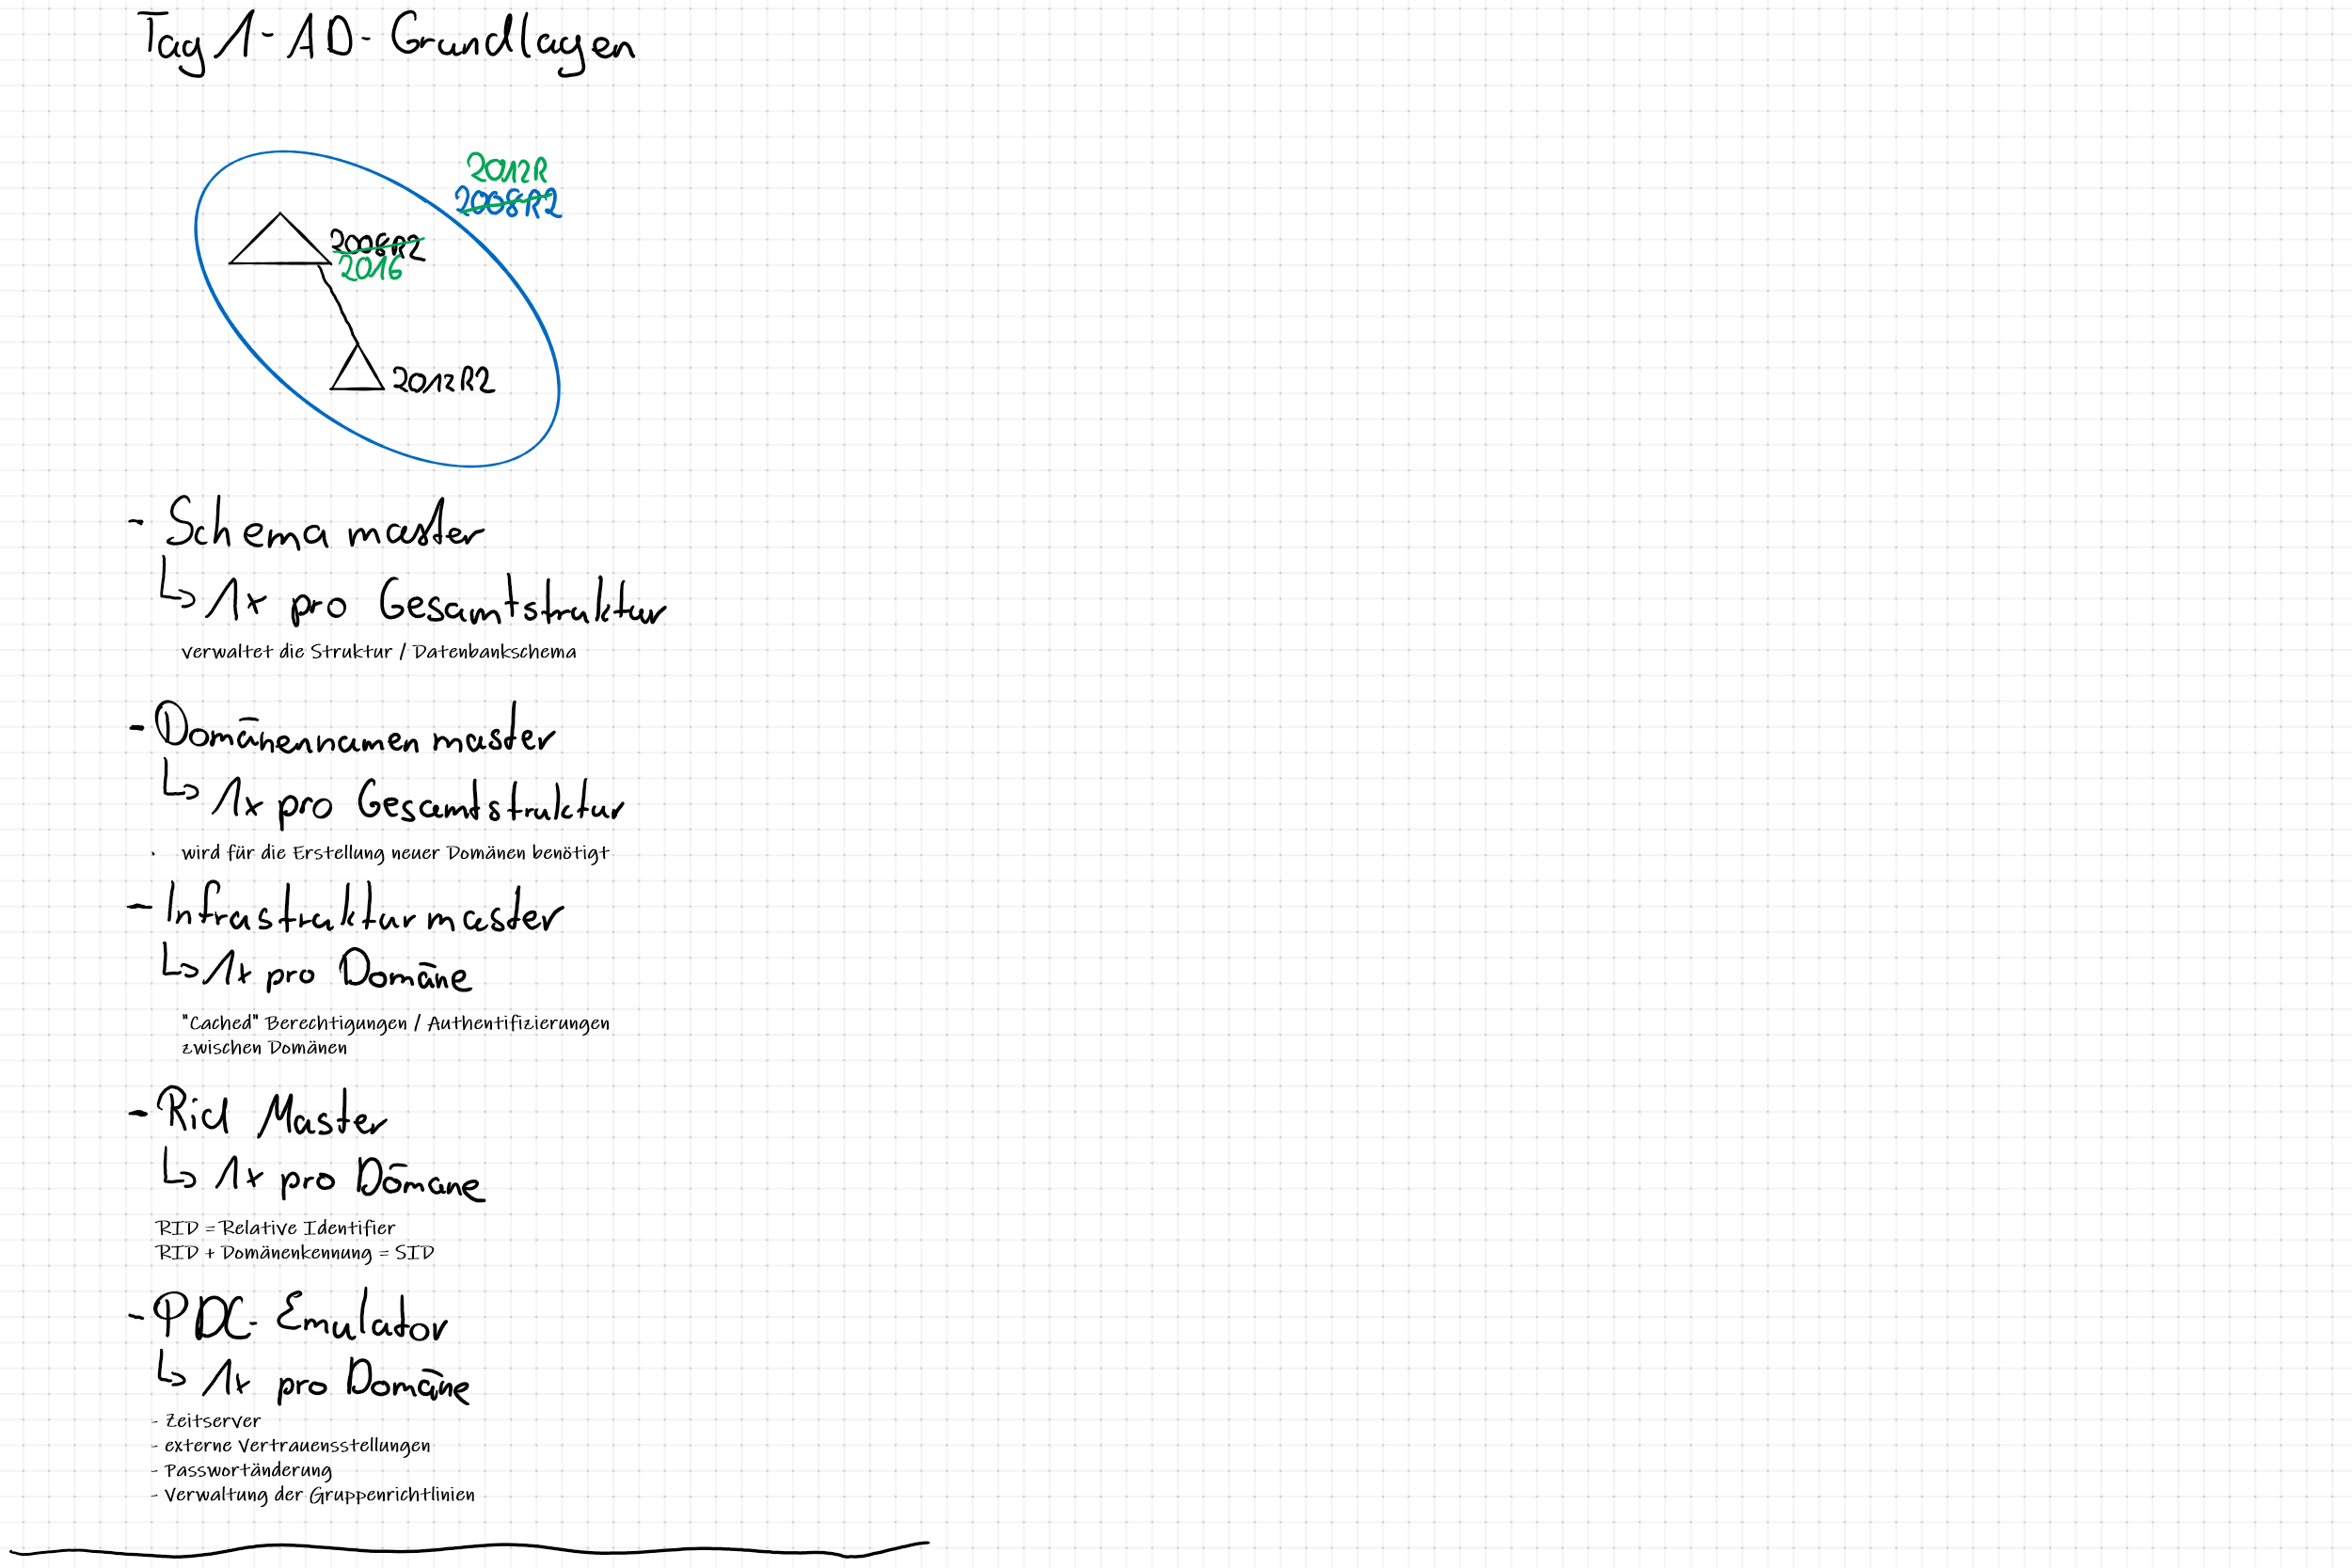 Tag 1 - AD - Grundlagen
2012R
2008R2
2008R2
2016
2012R2
- Schema master
↳ 1x pro Gesamtstruktur
verwaltet die Struktur / Datenbankschema
- Domänennamen master
↳ 1x pro Gesamtstruktur
wird für die Erstellung neuer Domänen benötigt
- Infrastruktur master
↳ 1x pro Domäne
"Cached" Berechtigungen / Authentifizierungen
zwischen Domänen
- Rid Master
↳ 1x pro Dömane
RID = Relative Identifier
RID + Domänenkennung = SID
- PDC - Emulator
↳ 1x pro Domäne
- Zeitserver
- externe Vertrauensstellungen
- Passwortänderung
- Verwaltung der Gruppenrichtlinien